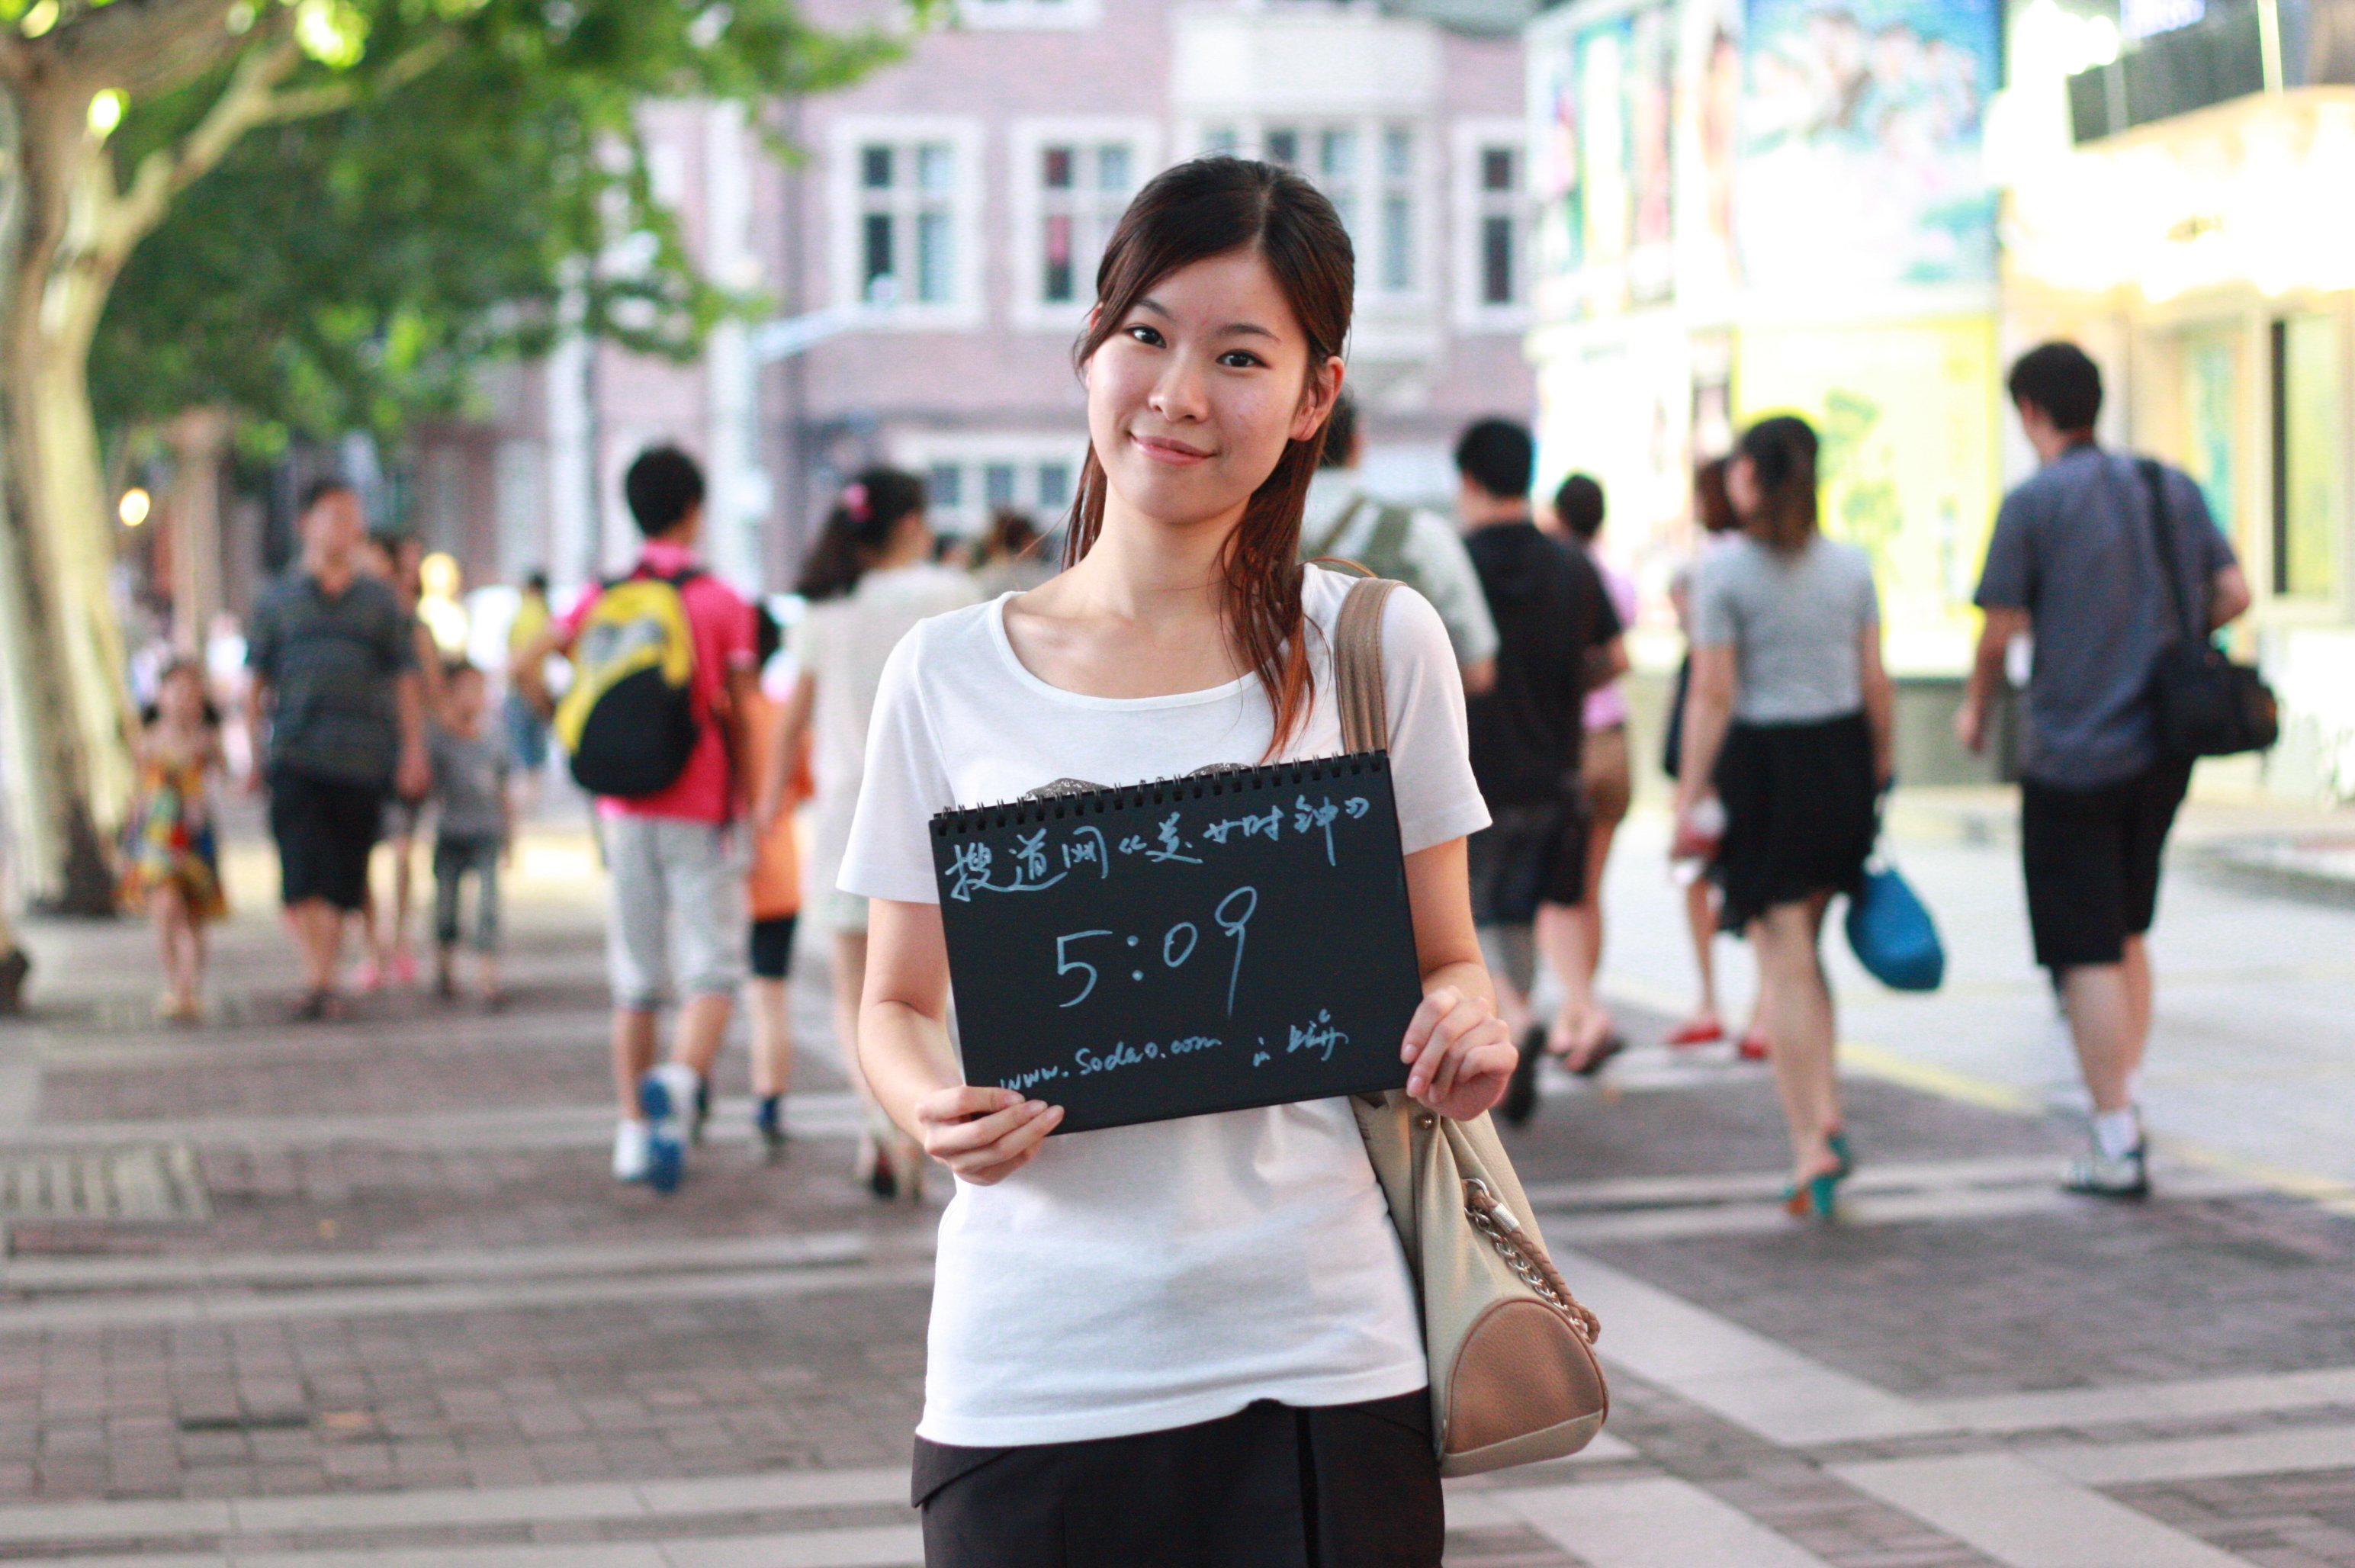 搜道网《美女时钟》
5:09
www.Sodao.com in 上海